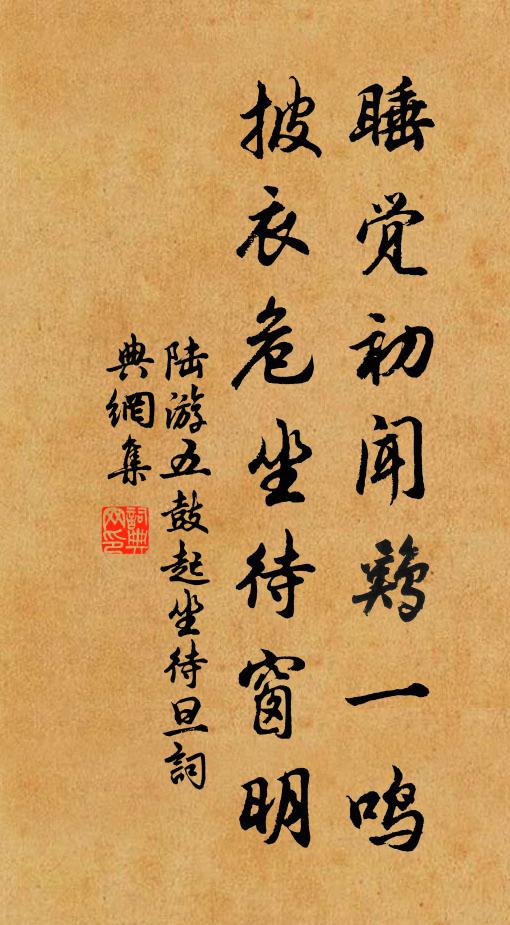 睡觉初闻鷄一鸣
披衣危坐待窗明
陆游五鼓起坐待旦詞
典網集
詞典網印